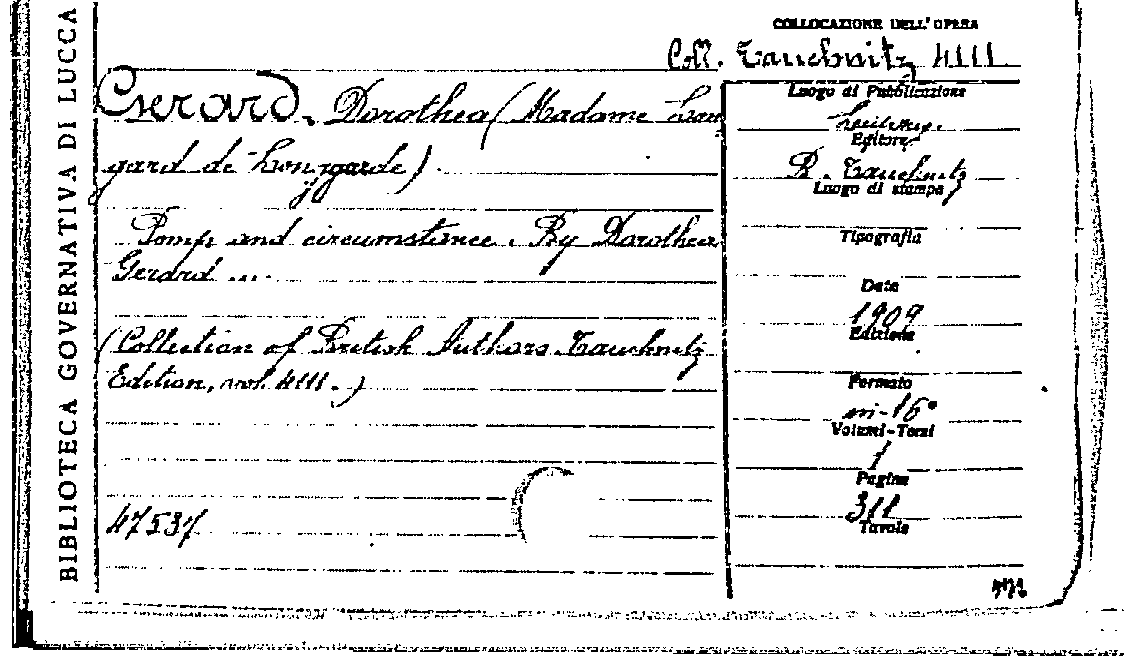 BIBLIOTECA GOVERNATIVA DI LUCCA
COLLOCAZIONE DELL'OPERA
Coll. Tauchnitz 4111
Gerard, Dorothea (Madame Lon
gard de Longgarde)
Pomp and circumstance. By Dorothea
Gerard ...
(Collection of British Authors Tauchnitz
Edition, vol. 4111.)
47537
Luogo di Pubblicazione
Editore
B. Tauchnitz
Luogo di stampa
Tipografia
Data
1909
Edizione
Formato
in-16°
Volumi-Tomi
1
Pagine
311
Tavole